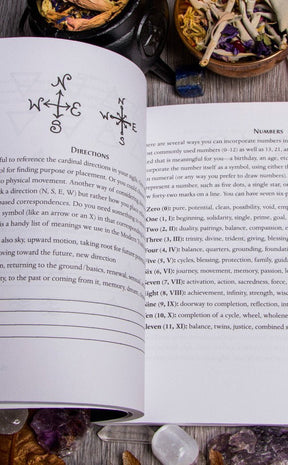 N
W E
S
N
W E
S
DIRECTIONS
ful to reference the cardinal directions in your sigils
ol for finding purpose or placement. Or you could
to physical movement. Another way of
k a direction (N, S, E, W) but rather how you
based correspondences. Do you need something
symbol (like an arrow or an X) in that
is a handy list of meanings we use in the Modern
also sky, upward motion, taking root for future
oving toward the future, new direction
n, returning to the ground/basics, renewal,
ty, to the past or coming from it, memory, dream,
NUMBERS
ere are several ways you can incorporate numbers in
ost commonly used numbers (0–12) as well as 13, 21, and
ed that is meaningful for you—a birthday, an age, etc
corporate the number itself as a symbol, using either
an numeral (or any way you prefer to draw numbers).
represent a number, such as five dots, a single star, or
forty-two marks on a line. You can have seven
Zero (0): pure, potential, clean, possibility, void, emp
One (1, I): beginning, solidarity, single, prime, goal,
Two (2, II): duality, pairings, balance, compassion,
Three (3, III): trinity, divine, strident, giving, blessing
Four (4, IV): balance, quarters, grounding, foundation
Five (5, V): cycles, blessing, protection, family, guida
Six (6, VI): journey, movement, memory, passion,
Seven (7, VII): activation, action, sacredness, force,
ight (8, VIII): achievement, infinity, strength, wisd
Nine (9, IX): doorway to completion, reflection, int
en (10, X): completion of a cycle, wheel, wholene
leven (11, XI): balance, twins, justice, combined s